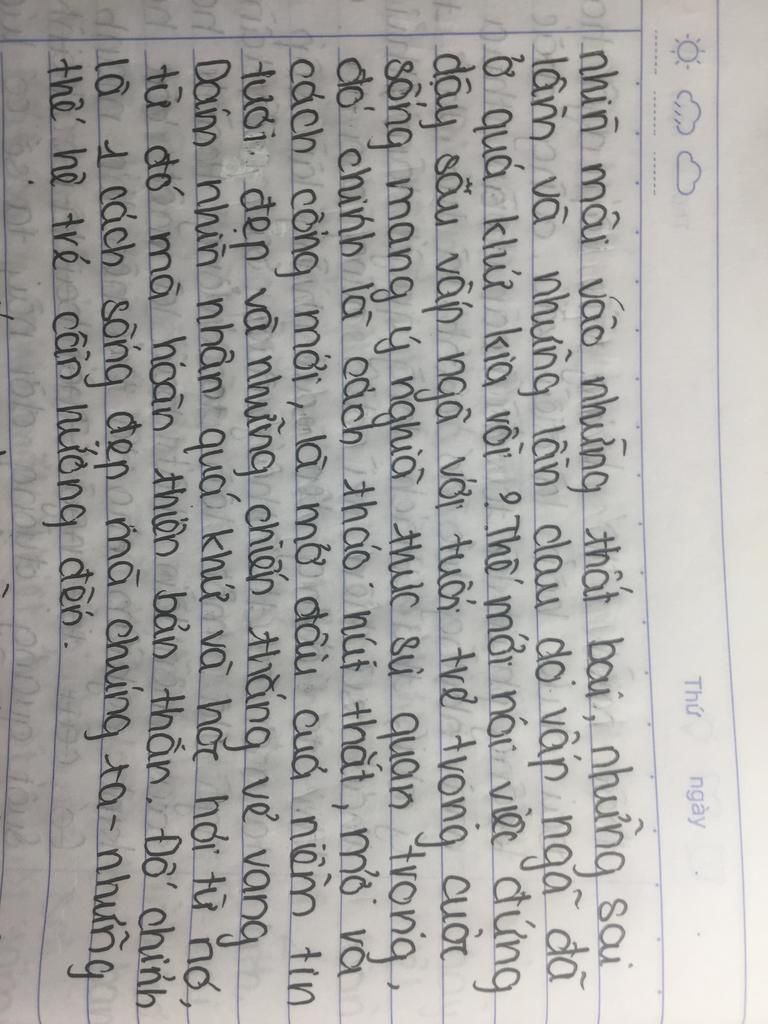 Thứ ngày
nhìn mãi vào những thất bại, những sai
lầm và những lần đau do vấp ngã đã
ở quá khứ kia rồi? Thế mới nói việc đứng
dậy sau vấp ngã với tuổi trẻ trong cuộc
sống mang ý nghĩa thực sự quan trọng,
đó chính là cách tháo nút thắt, mở ra
cách cổng mới, là mở đầu của niềm tin
tươi đẹp và những chiến thắng vẻ vang
Dám nhìn nhận quá khứ và học hỏi từ nó,
từ đó mà hoàn thiện bản thân. Đó chính
là 1 cách sống đẹp mà chúng ta - những
thế hệ trẻ cần hướng đến.